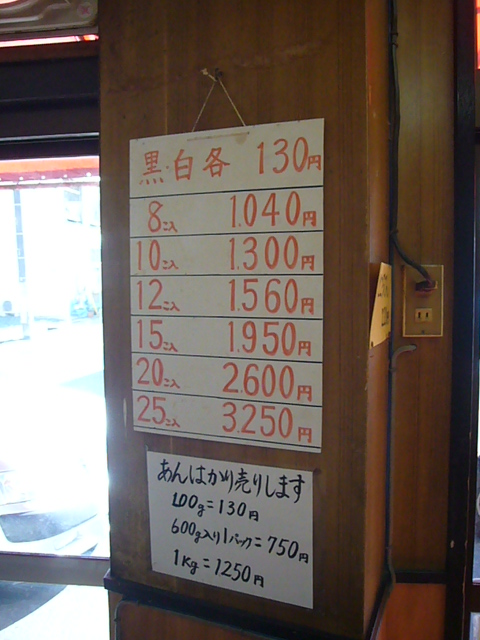 黒・白各 130円
8こ入 1.040円
10こ入 1.300円
12こ入 1.560円
15こ入 1.950円
20こ入 2.600円
25こ入 3.250円
あんはかり売りします
100g=130円
600g入り1パック=750円
1Kg=1250円